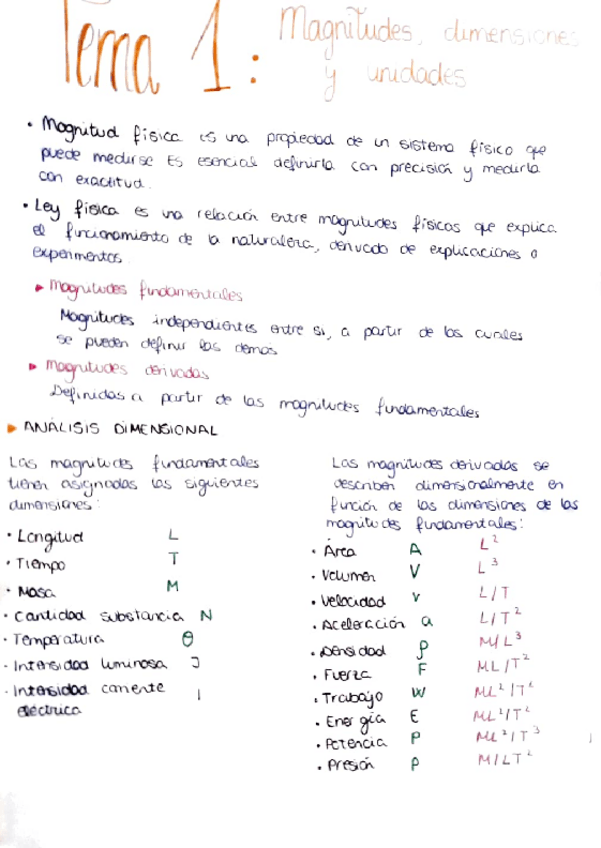 Tema 1: Magnitudes, dimensiones
y unidades
• Magnitud física es una propiedad de un sistema físico que
puede medirse Es esencial definirla con precisión y medirla
con exactitud.
• Ley física es una relación entre magnitudes físicas que explica
el funcionamiento de la naturaleza, derivado de explicaciones o
experimentos
▸ Magnitudes fundamentales
Magnitudes independientes entre sí, a partir de las cuales
se pueden definir las demás
▸ Magnitudes derivadas
Definidas a partir de las magnitudes fundamentales
▸ ANÁLISIS DIMENSIONAL
Las magnitudes fundamentales
tienen asignadas las siguientes
dimensiones:
• Longitud L
• Tiempo T
• Masa M
• Cantidad substancia N
• Temperatura Θ
• Intensidad luminosa J
• Intensidad corriente I
eléctrica
Las magnitudes derivadas se
describen dimensionalmente en
función de las dimensiones de las
magnitudes fundamentales:
• Área A L²
• Volumen V L³
• Velocidad v L/T
• Aceleración a L/T²
• Densidad ρ M/L³
• Fuerza F ML/T²
• Trabajo W ML²/T²
• Energía E ML²/T²
• Potencia P ML²/T³
• Presión P M/LT²